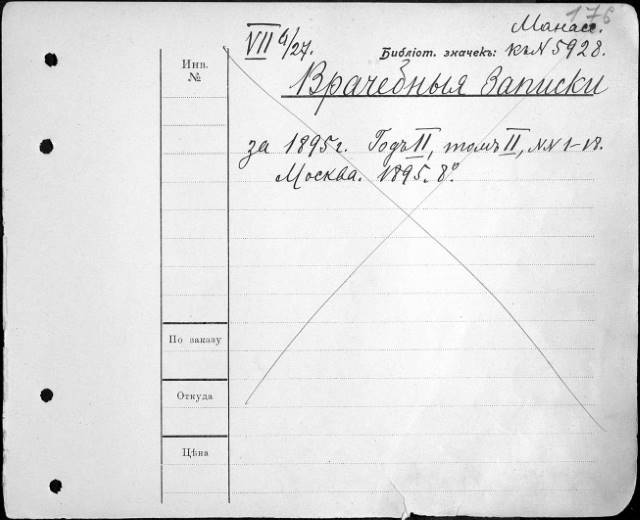 176
Манасс.
VII а/27.
Библіот. значекъ: къ N 5928.
Инв.
№
Врачебныя Записки
за 1895 г. Годъ II, томъ II, NN 1-18.
Москва. 1895. 8º.
По заказу
Откуда
Цѣна